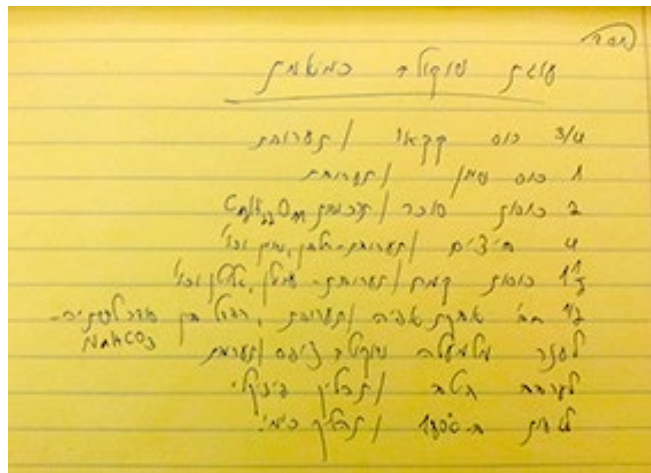 בס"ד
עוגת שוקולד כמשאמת
3/4 כוס קקאו / תערובת
1 כוס שמן / תערובת
2 כוסות סוכר / תרכובת C₁₂H₂₂O₁₁
4 ביצים / תערובת - חלבון, מים וכו'
1 1/2 כוסות קמח / תערובת - עמילן, גלוטן וכו'
1/2 אבקת אפיה / תערובת,
NaHCO₃
לפזר מלמעלה שוקולד צ'יפס / תערובת
לערבב היטב / תהליך פיזיקלי
לאפות ב-180° / תהליך כימי